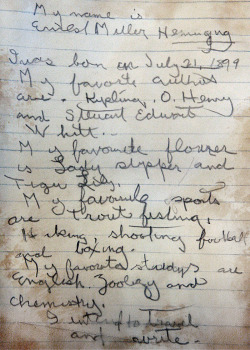 My name is
Ernest Miller Hemingway
I was born on July 21, 1899
My favorite authors
are. Kipling, O. Henry
and Steuart Edward
White.
My favorite flower
is Lady slipper and
Tiger Lily.
My favourite sports
are Trout fishing,
Hiking, shooting football
and boxing.
My favorite studys are
English. Zoology and
chemistry.
I intend to travel
and write.